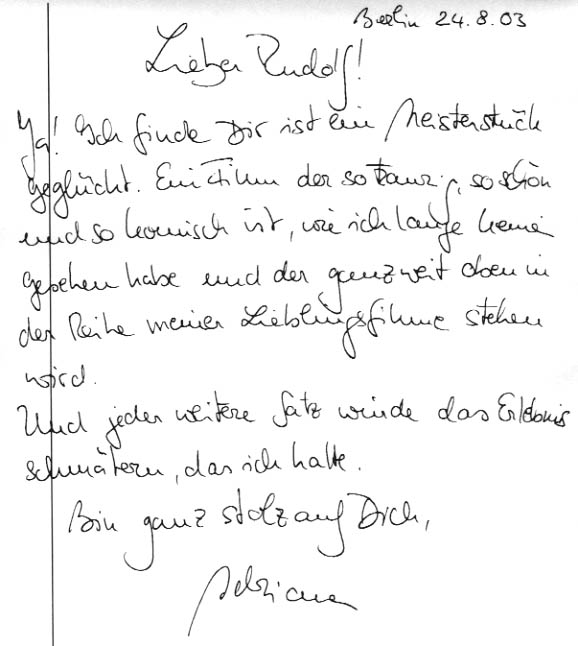 Berlin 24.8.03
Lieber Rudolf!
Ja! Ich finde Dir ist ein Meisterstück
geglückt. Ein Film der so traurig, so schön
und so komisch ist, wie ich lange keine
gesehen habe und der ganz weit oben in
der Reihe meiner Lieblingsfilme stehen
wird.
Und jeder weitere Satz würde das Erlebnis
schmälern, das ich hatte.
Bin ganz stolz auf Dich,
Adriana